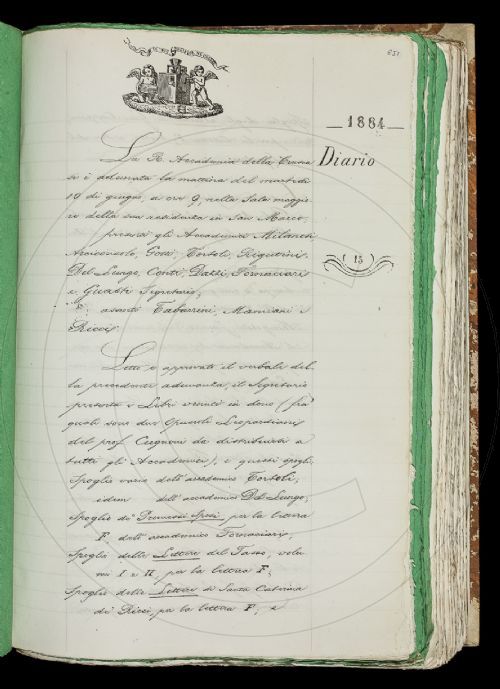 1884
Diario
15
La R. Accademia della Crusca
si è adunata la mattina del martedì
10 di giugno, a ore 9, nella Sala maggio-
re della sua residenza in San Marco,
presenti gli Accademici Milanesi
Arciconsolo, Gotti, Tortoli, Rigutini,
Del Lungo, Conti, Dazzi, Tommasini
e Guasti Segretario;
assenti Tabarrini, Mamiani e
Ricci.
Letto e approvato il verbale del-
la precedente adunanza, il Segretario
presenta i Libri venuti in dono (fra'
quali sono due Opuscoli Leopardiani
del prof. Cugnoni da distribuirsi a
tutti gli Accademici), e questi spogli:
Spoglio vario dell' accademico Tortoli;
idem dell' accademico Del Lungo;
spoglio de' Promessi Sposi, per la lettera
F, dell' accademico
Spoglio delle Lettere del Tasso, volu-
mi I e II, per la lettera F;
Spoglio delle Lettere di Santa Caterina
de' Ricci, per la lettera F; e